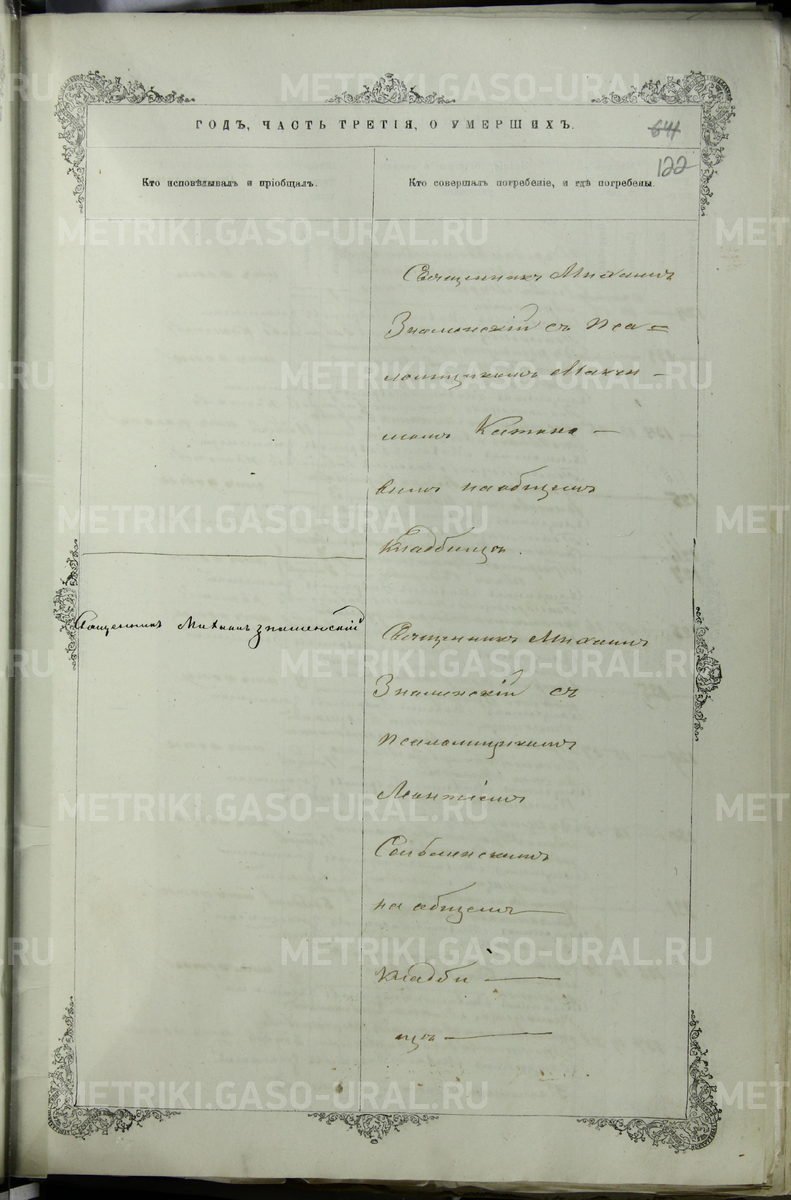 ГОДЪ, ЧАСТЬ ТРЕТІЯ, О УМЕРШИХЪ.
641
122
Кто исповѣдывалъ и пріобщалъ.
Кто совершалъ погребеніе, и гдѣ погребены.
Священникъ Михаилъ
Знаменскій съ Пса=
ломщикомъ
на общемъ
Кладбищѣ.
Священникъ Михаилъ Знаменскій
Священникъ Михаилъ
Знаменскій съ
Псаломщикомъ
на общемъ
Кладби
щѣ
METRIKI.GASO-URAL.RU